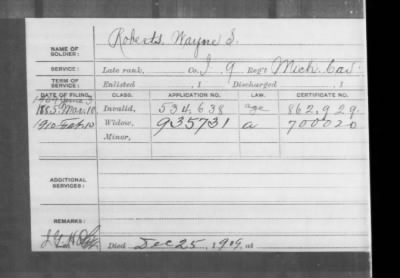 NAME OF SOLDIER: Roberts, Wayne S.
SERVICE: Late rank, Co. I 9 Reg't Mich. Cav.
TERM OF SERVICE: Enlisted , 1 Discharged , 1
DATE OF FILING. CLASS. APPLICATION NO. LAW. CERTIFICATE NO.
1885 Mar. 10 Invalid, 534,638 age 862,929.
1910 Feb. 10 Widow, 935731 a 700020
Minor,
ADDITIONAL SERVICES:
REMARKS:
Died Dec 25, 1909, at